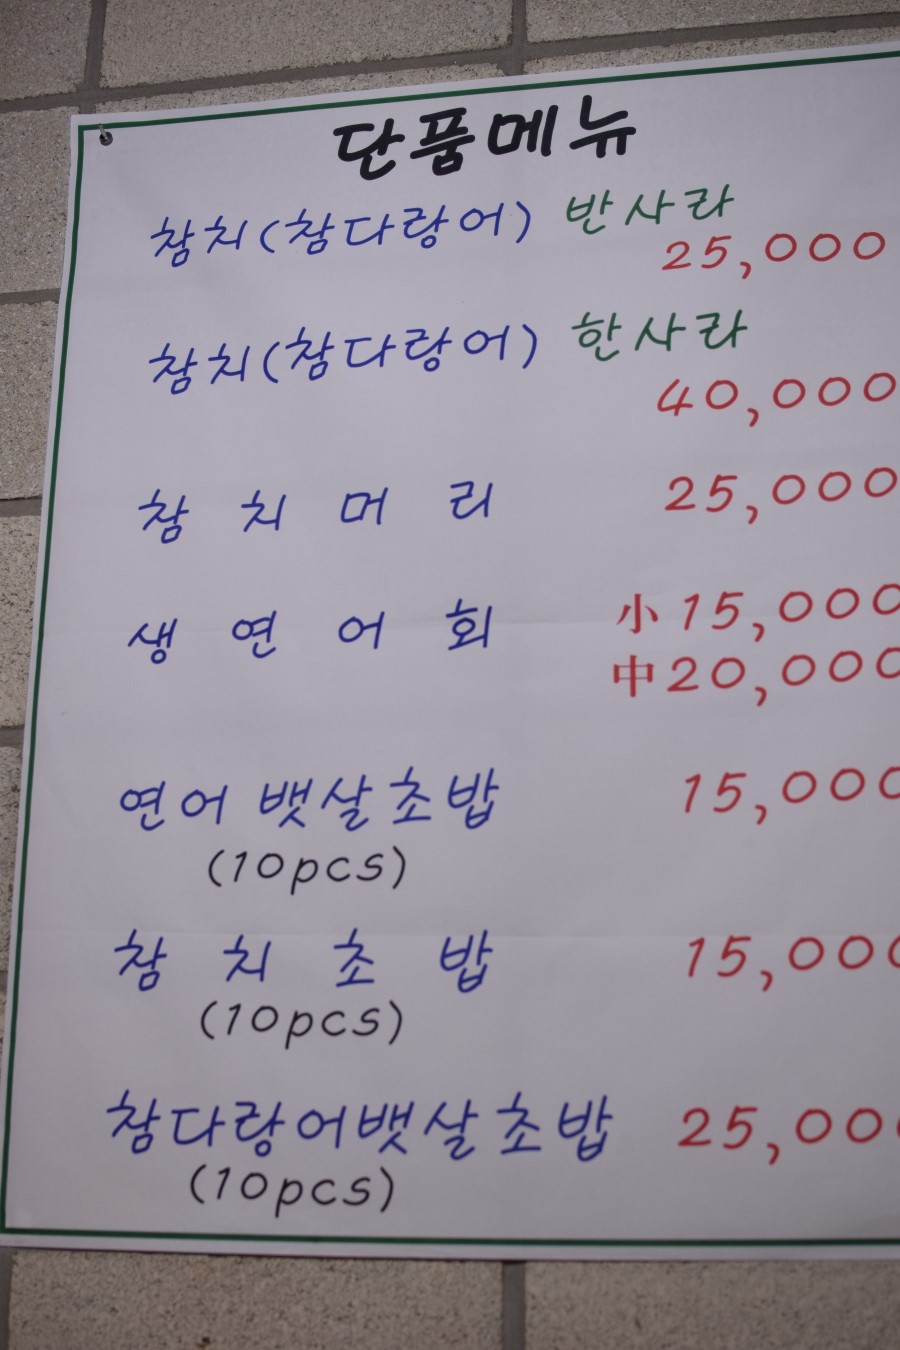 단풍메뉴
참치(참다랑어) 반사라
25,000
참치(참다랑어) 한사라
40,000
참치머리 25,000
생연어회 小 15,000
中 20,000
연어 뱃살초밥 15,000
(10pcs)
참치초밥 15,000
(10pcs)
참다랑어뱃살초밥 25,000
(10pcs)